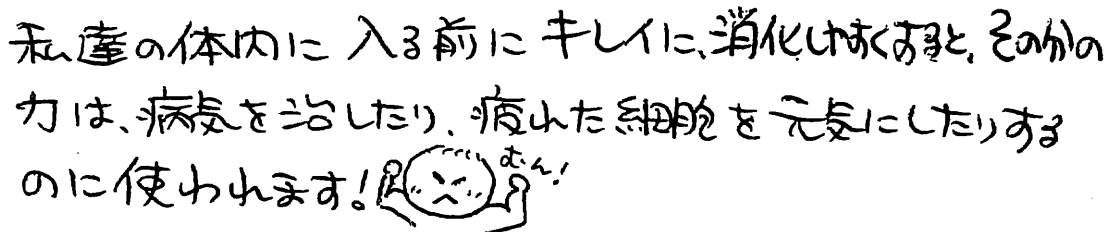 私達の体内に入る前にキレイに、消化しやすくすると、その分の
力は、病気を治したり、疲れた細胞を元気にしたりする
のに使われます!むん!